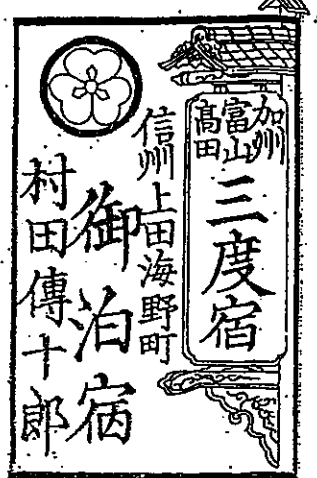 加州
富山
高田
三度宿
信州上田海野町
御泊宿
村田傳十郎